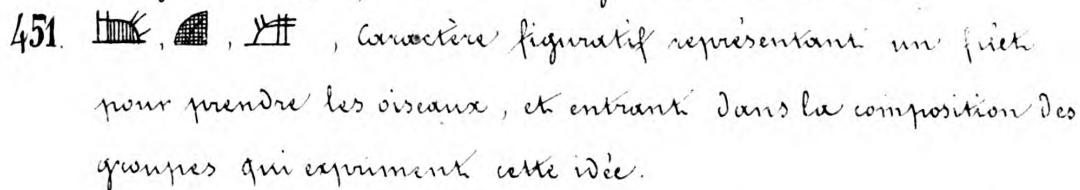 451. , , , Caractère figuratif représentant un filet
pour prendre les oiseaux, et entrant dans la composition des
groupes qui expriment cette idée.